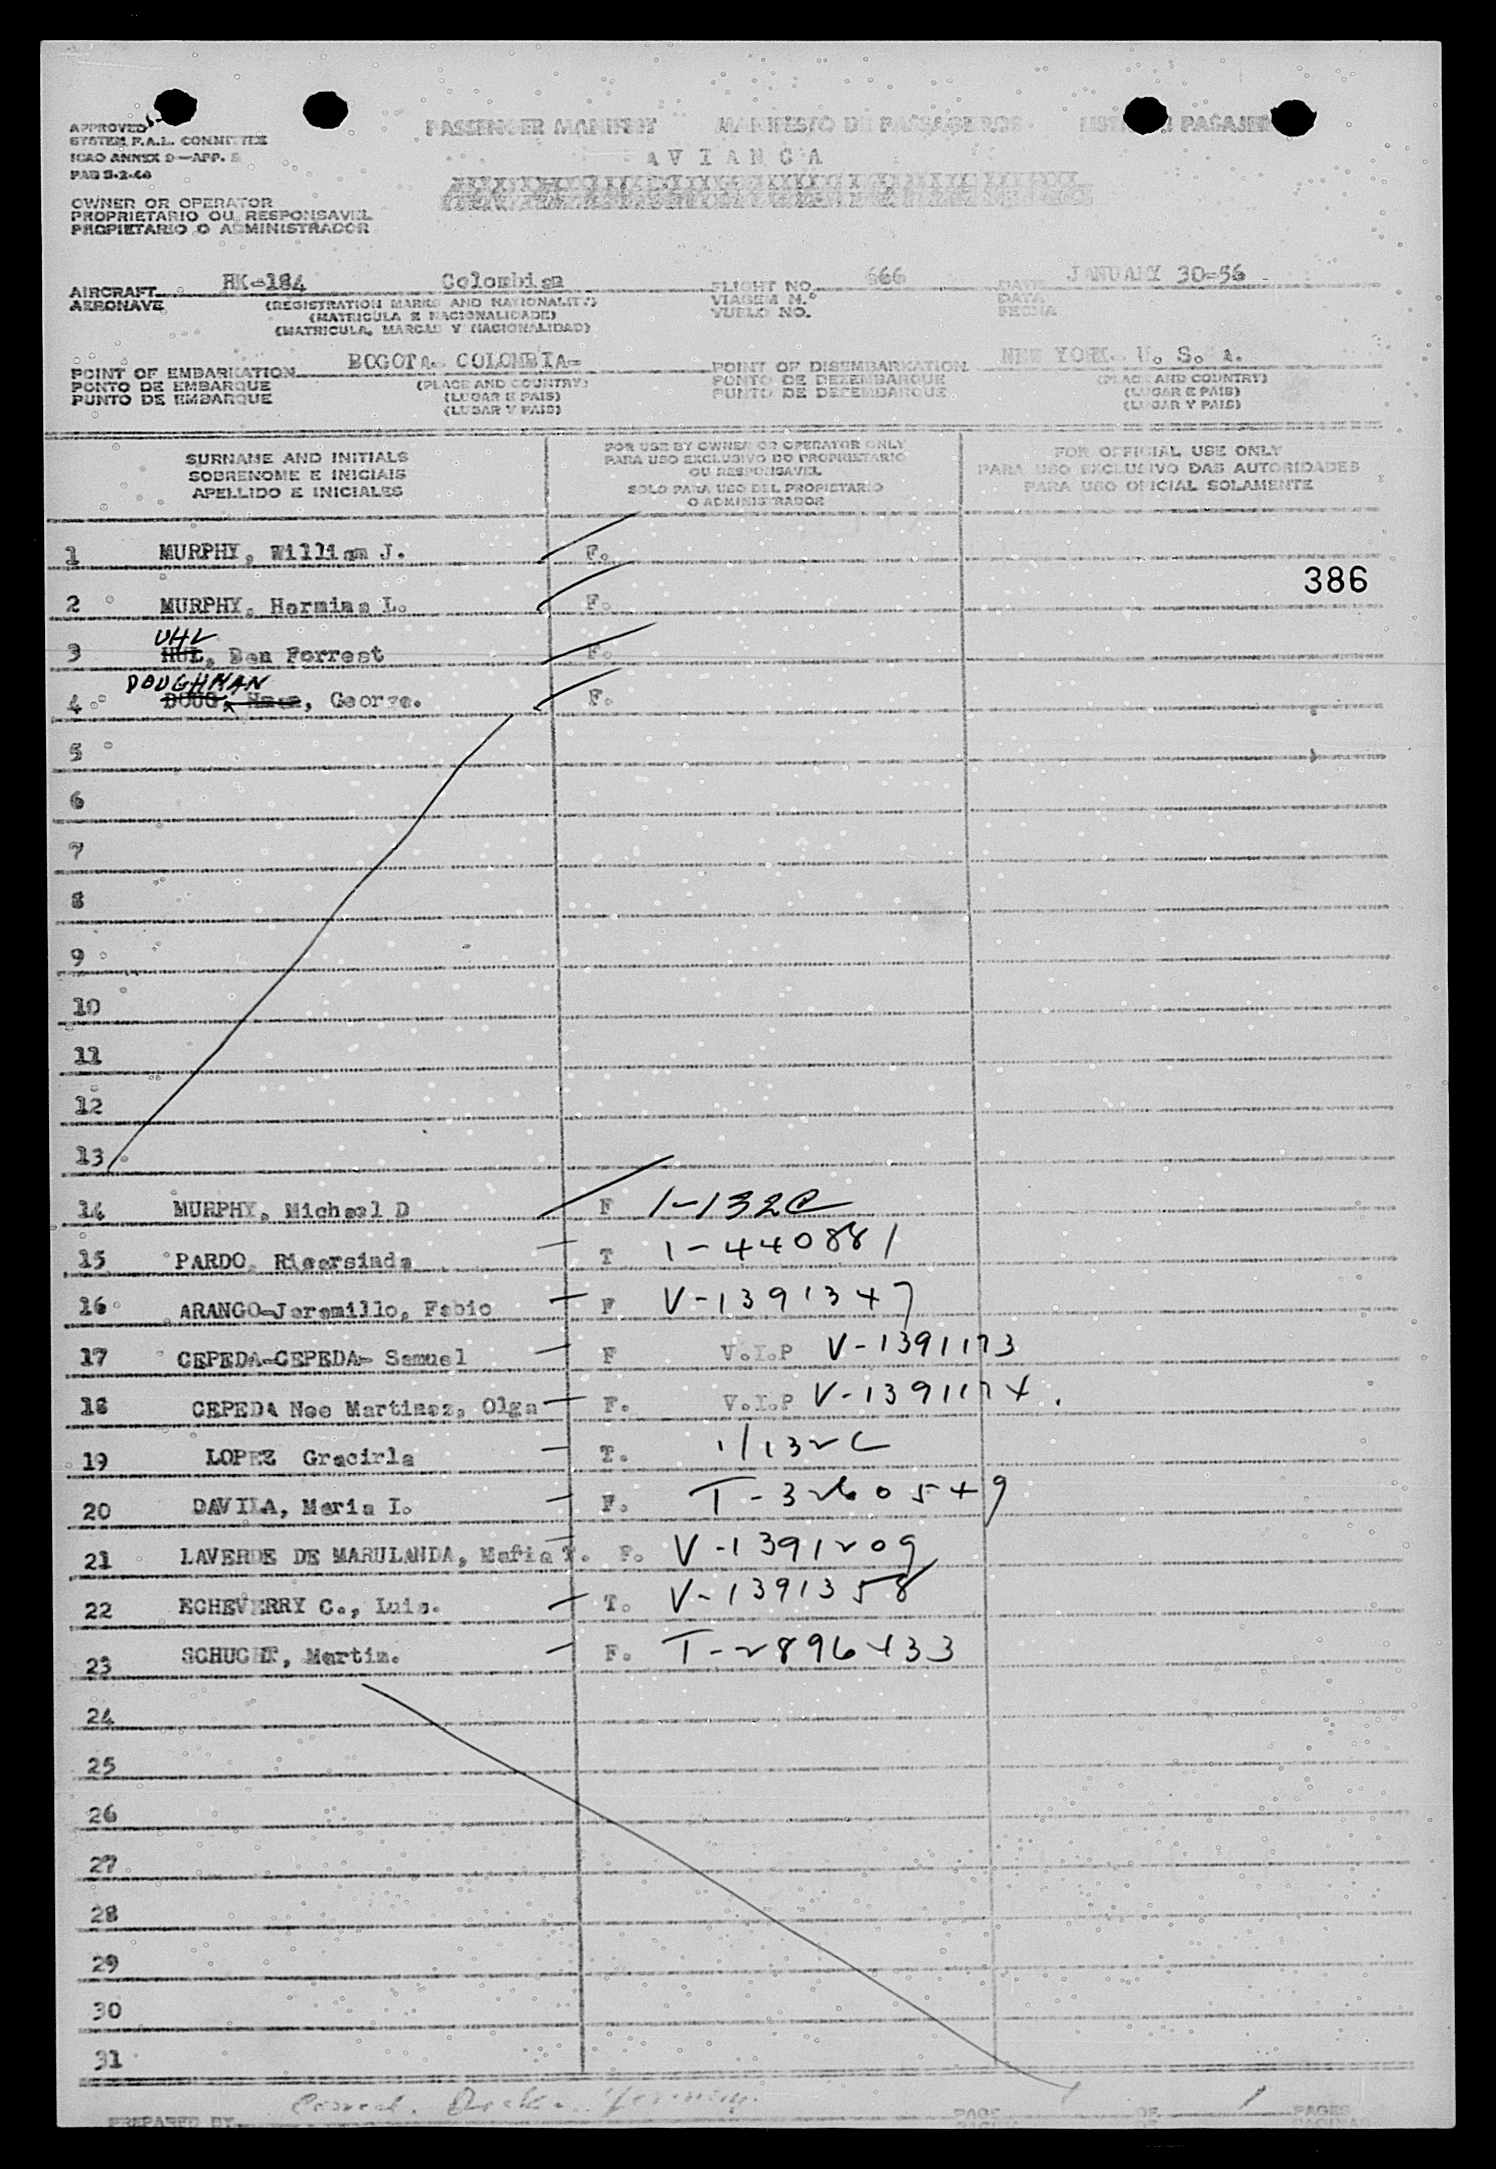 APPROVED
SYSTEM F.A.L. COMMITTEE
ICAO ANNEX 9—APP.
PAB 5-2-46
PASSENGER MANIFEST MANIFESTO DE PASSAGEIROS LISTA DE PASAJEROS
AVIANCA
OWNER OR OPERATOR
PROPRIETARIO OU RESPONSAVEL
PROPIETARIO O ADMINISTRADOR
AIRCRAFT HK-184 Colombian FLIGHT NO. 666 DATE JANUARY 30-56
AERONAVE (REGISTRATION MARKS AND NATIONALITY) VIAGEM N.º DATA
(MATRICULA E NACIONALIDADE) VUELO NO. FECHA
(MATRICULA, MARCAS Y NACIONALIDAD)
POINT OF EMBARKATION BOGOTA- COLOMBIA- POINT OF DISEMBARKATION NEW YORK- U. S. A.
PONTO DE EMBARQUE (PLACE AND COUNTRY) PONTO DE DEZEMBARQUE (PLACE AND COUNTRY)
PUNTO DE EMBARQUE (LUGAR E PAIS) PUNTO DE DEZEMBARQUE (LUGAR E PAIS)
(LUGAR Y PAIS) (LUGAR Y PAIS)
SURNAME AND INITIALS FOR USE BY OWNER OR OPERATOR ONLY FOR OFFICIAL USE ONLY
SOBRENOME E INICIAIS PARA USO EXCLUSIVO DO PROPRIETARIO PARA USO EXCLUSIVO DAS AUTORIDADES
APELLIDO E INICIALES OU RESPONSAVEL PARA USO OFICIAL SOLAMENTE
SOLO PARA USO DEL PROPIETARIO
O ADMINISTRADOR
1 MURPHY, William J. F.
386
2 MURPHY, Hermina L. F.
UHL
3 HUL, Ben Forrest F.
DOUGHMAN
4 DOUG, , George. F.
5
6
7
8
9
10
11
12
13
14 MURPHY, Michael D F 1-132C
15 PARDO, Ricarsinda T 1-440881
16 ARANGO-Jaramillo, Fabio F V-1391347
17 CEPEDA-CEPEDA- Samuel F V.I.P V-1391173
18 CEPEDA Nee Martinez, Olga F. V.I.P V-1391174.
19 LOPEZ Gracirla T. 1/132C
20 DAVILA, Maria I. F. T-3260549
21 LAVERDE DE MARULANDA, Maria T. F. V-1391209
22 ECHEVERRY C., Luis. T. V-1391358
23 SCHUCHT, Martin. F. T-2896433
24
25
26
27
28
29
30
31
PREPARED BY PAGE 1 OF 1 PAGES